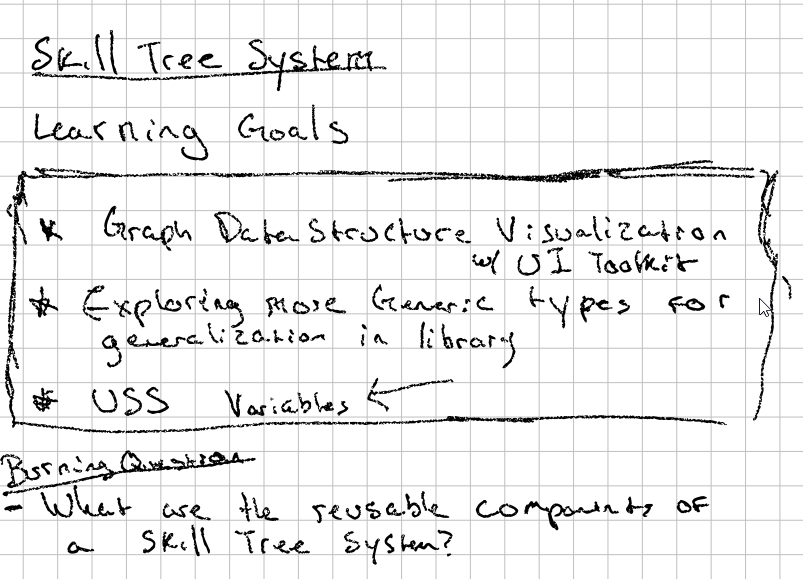 Skill Tree System
Learning Goals
* Graph Data Structure Visualization
w/ UI Toolkit
* Exploring more Generic types for
generalization in library
* USS Variables
Burning Question
- What are the reusable components of
a Skill Tree System?